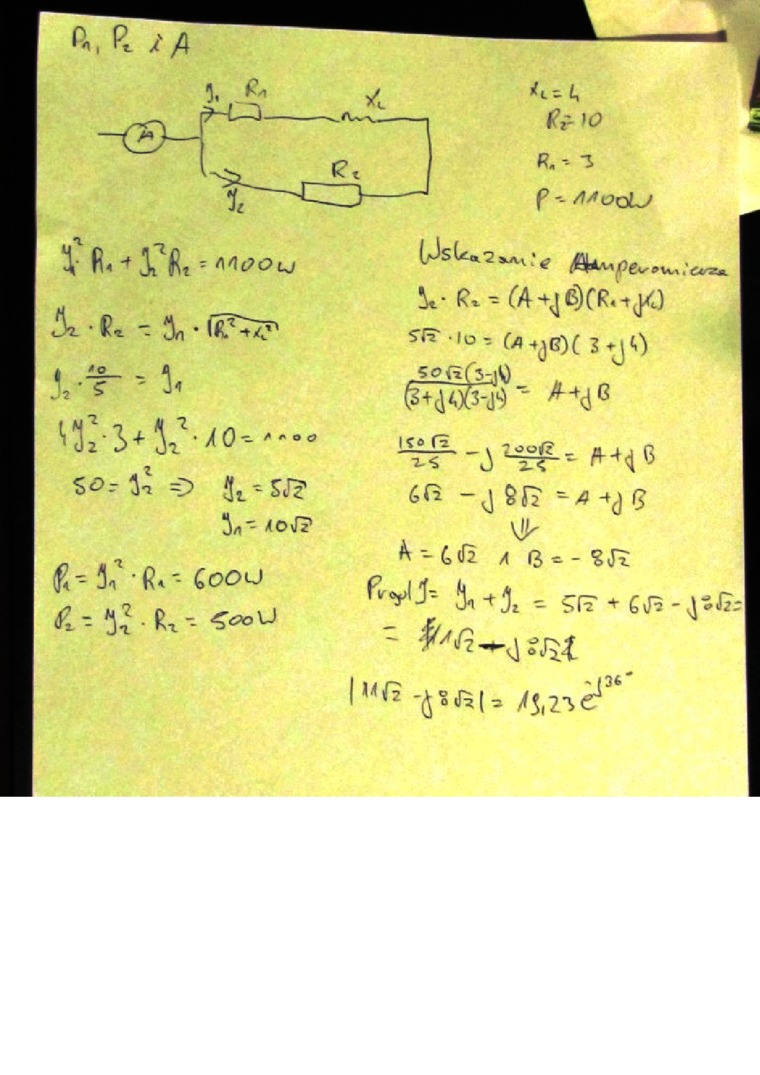 P₁, P₂ i A
J₁ R₁ X_L
A
R₂
J₂
X_L = 4
R₂ = 10
R₁ = 3
P = 1100W
J₁² R₁ + J₂² R₂ = 1100W
J₂ · R₂ = J₁ · √(R₁² + X_L²)
J₂ · 10/5 = J₁
4J₂² · 3 + J₂² · 10 = 1100
50 = J₂² ⇒ J₂ = 5√2
J₁ = 10√2
P₁ = J₁² · R₁ = 600W
P₂ = J₂² · R₂ = 500W
Wskazanie Amperomierza
J₂ · R₂ = (A + jB)(R₁ + jX_L)
5√2 · 10 = (A + jB)(3 + j4)
50√2(3-j4)/(3+j4)(3-j4) = A + jB
150√2/25 - j 200√2/25 = A + jB
6√2 - j 8√2 = A + jB
⇓
A = 6√2 ∧ B = - 8√2
J = J₁ + J₂ = 5√2 + 6√2 - j8√2 =
= 11√2 - j8√2
|11√2 - j8√2| = 19,23 e^-j36°